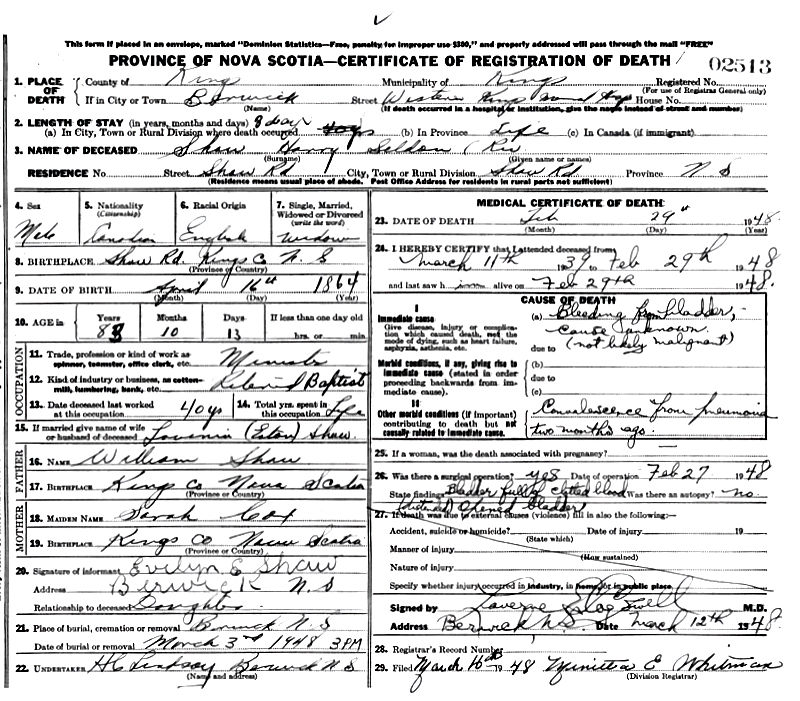 This form if placed in an envelope, marked "Dominion Statistics—Free, penalty for improper use $300," and properly addressed will pass through the mail "FREE"
PROVINCE OF NOVA SCOTIA—CERTIFICATE OF REGISTRATION OF DEATH
02513
1. PLACE OF DEATH County of Kings Municipality of Kings Registered No.
(For use of Registrar General only)
If in City or Town Berwick Street Western Kings House No.
(Name) (If death occurred in a hospital or institution, give the name instead of street and number)
2. LENGTH OF STAY (in years, months and days) 8 days
(a) In City, Town or Rural Division where death occurred (b) In Province Life (c) In Canada (if immigrant)
3. NAME OF DECEASED Shaw Harry Seldon (Rev
(Surname) (Given name or names)
RESIDENCE No. Street Shaw Rd City, Town or Rural Division Shaw Rd Province N S
(Residence means usual place of abode. Post Office Address for residents in rural parts not sufficient)
4. Sex 5. Nationality (Citizenship) 6. Racial Origin 7. Single, Married, Widowed or Divorced (write the word)
Male Canadian English Widow
8. BIRTHPLACE Shaw Rd. Kings Co N. S
(Province or Country)
9. DATE OF BIRTH April 16th 1864
(Month) (Day) (Year)
10. AGE in Years Months Days If less than one day old
83 10 13 hrs. or min.
OCCUPATION
11. Trade, profession or kind of work as spinner, teamster, office clerk, etc. Minister
12. Kind of industry or business, as cotton-mill, lumbering, bank, etc. Retired Baptist
13. Date deceased last worked at this occupation 40 yrs 14. Total yrs. spent in this occupation Life
15. If married give name of wife or husband of deceased Lavenia (Eaton) Shaw
FATHER
16. NAME William Shaw
17. BIRTHPLACE Kings Co Nova Scotia
(Province or Country)
MOTHER
18. MAIDEN NAME Sarah Cox
19. BIRTHPLACE Kings Co Nova Scotia
(Province or Country)
20. Signature of informant Evelyn E Shaw
Address Berwick N. S
Relationship to deceased Daughter
21. Place of burial, cremation or removal Berwick N. S
Date of burial or removal March 3rd 1948 3PM
22. UNDERTAKER H C Lindsay Berwick N S
(Name and address)
MEDICAL CERTIFICATE OF DEATH
23. DATE OF DEATH Feb 29th 1948
(Month) (Day) (Year)
24. I HEREBY CERTIFY that I attended deceased from
March 11th 1939 to Feb 29th 1948
and last saw h im alive on Feb 29th 1948.
CAUSE OF DEATH
I
Immediate cause (a) Bleeding from bladder,
Give disease, injury or complication which caused death, not the mode of dying, such as heart failure, asphyxia, asthenia, etc.
cause unknown.
due to (not likely malignant)
Morbid conditions, if any, giving rise to immediate cause (stated in order proceeding backwards from immediate cause).
(b)
due to
(c)
II
Other morbid conditions (if important) contributing to death but not causally related to immediate cause.
Convalescence from pneumonia
two months ago.
25. If a woman, was the death associated with pregnancy?
26. Was there a surgical operation? yes Date of operation Feb 27 1948
State findings Bladder full of clotted blood Was there an autopsy? no.
opened bladder
27. If death was due to external causes (violence) fill in also the following:—
Accident, suicide or homicide? Date of injury 19
(State which)
Manner of injury
(How sustained)
Nature of injury
Specify whether injury occurred in industry, in home or in public place.
Signed by Laverne M.D.
Address Berwick N.S. Date March 12th 1948
28. Registrar's Record Number
29. Filed March 16th 1948 Minetta E Whitman
(Division Registrar)